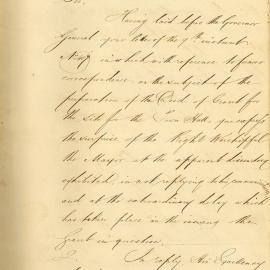 Sir,
Having laid before the Governor
General your letter of the 9th instant
in which with reference to former
correspondence on the subject of the
preparation of the Deed of Grant for
the Site for the Town Hall, you express
the surprise of the Right Worshipful
the Mayor at the apparent discourtesy
exhibited in not replying to
and at the extraordinary delay which
has taken place in the issuing the
Grant in question.
In reply, His Excellency